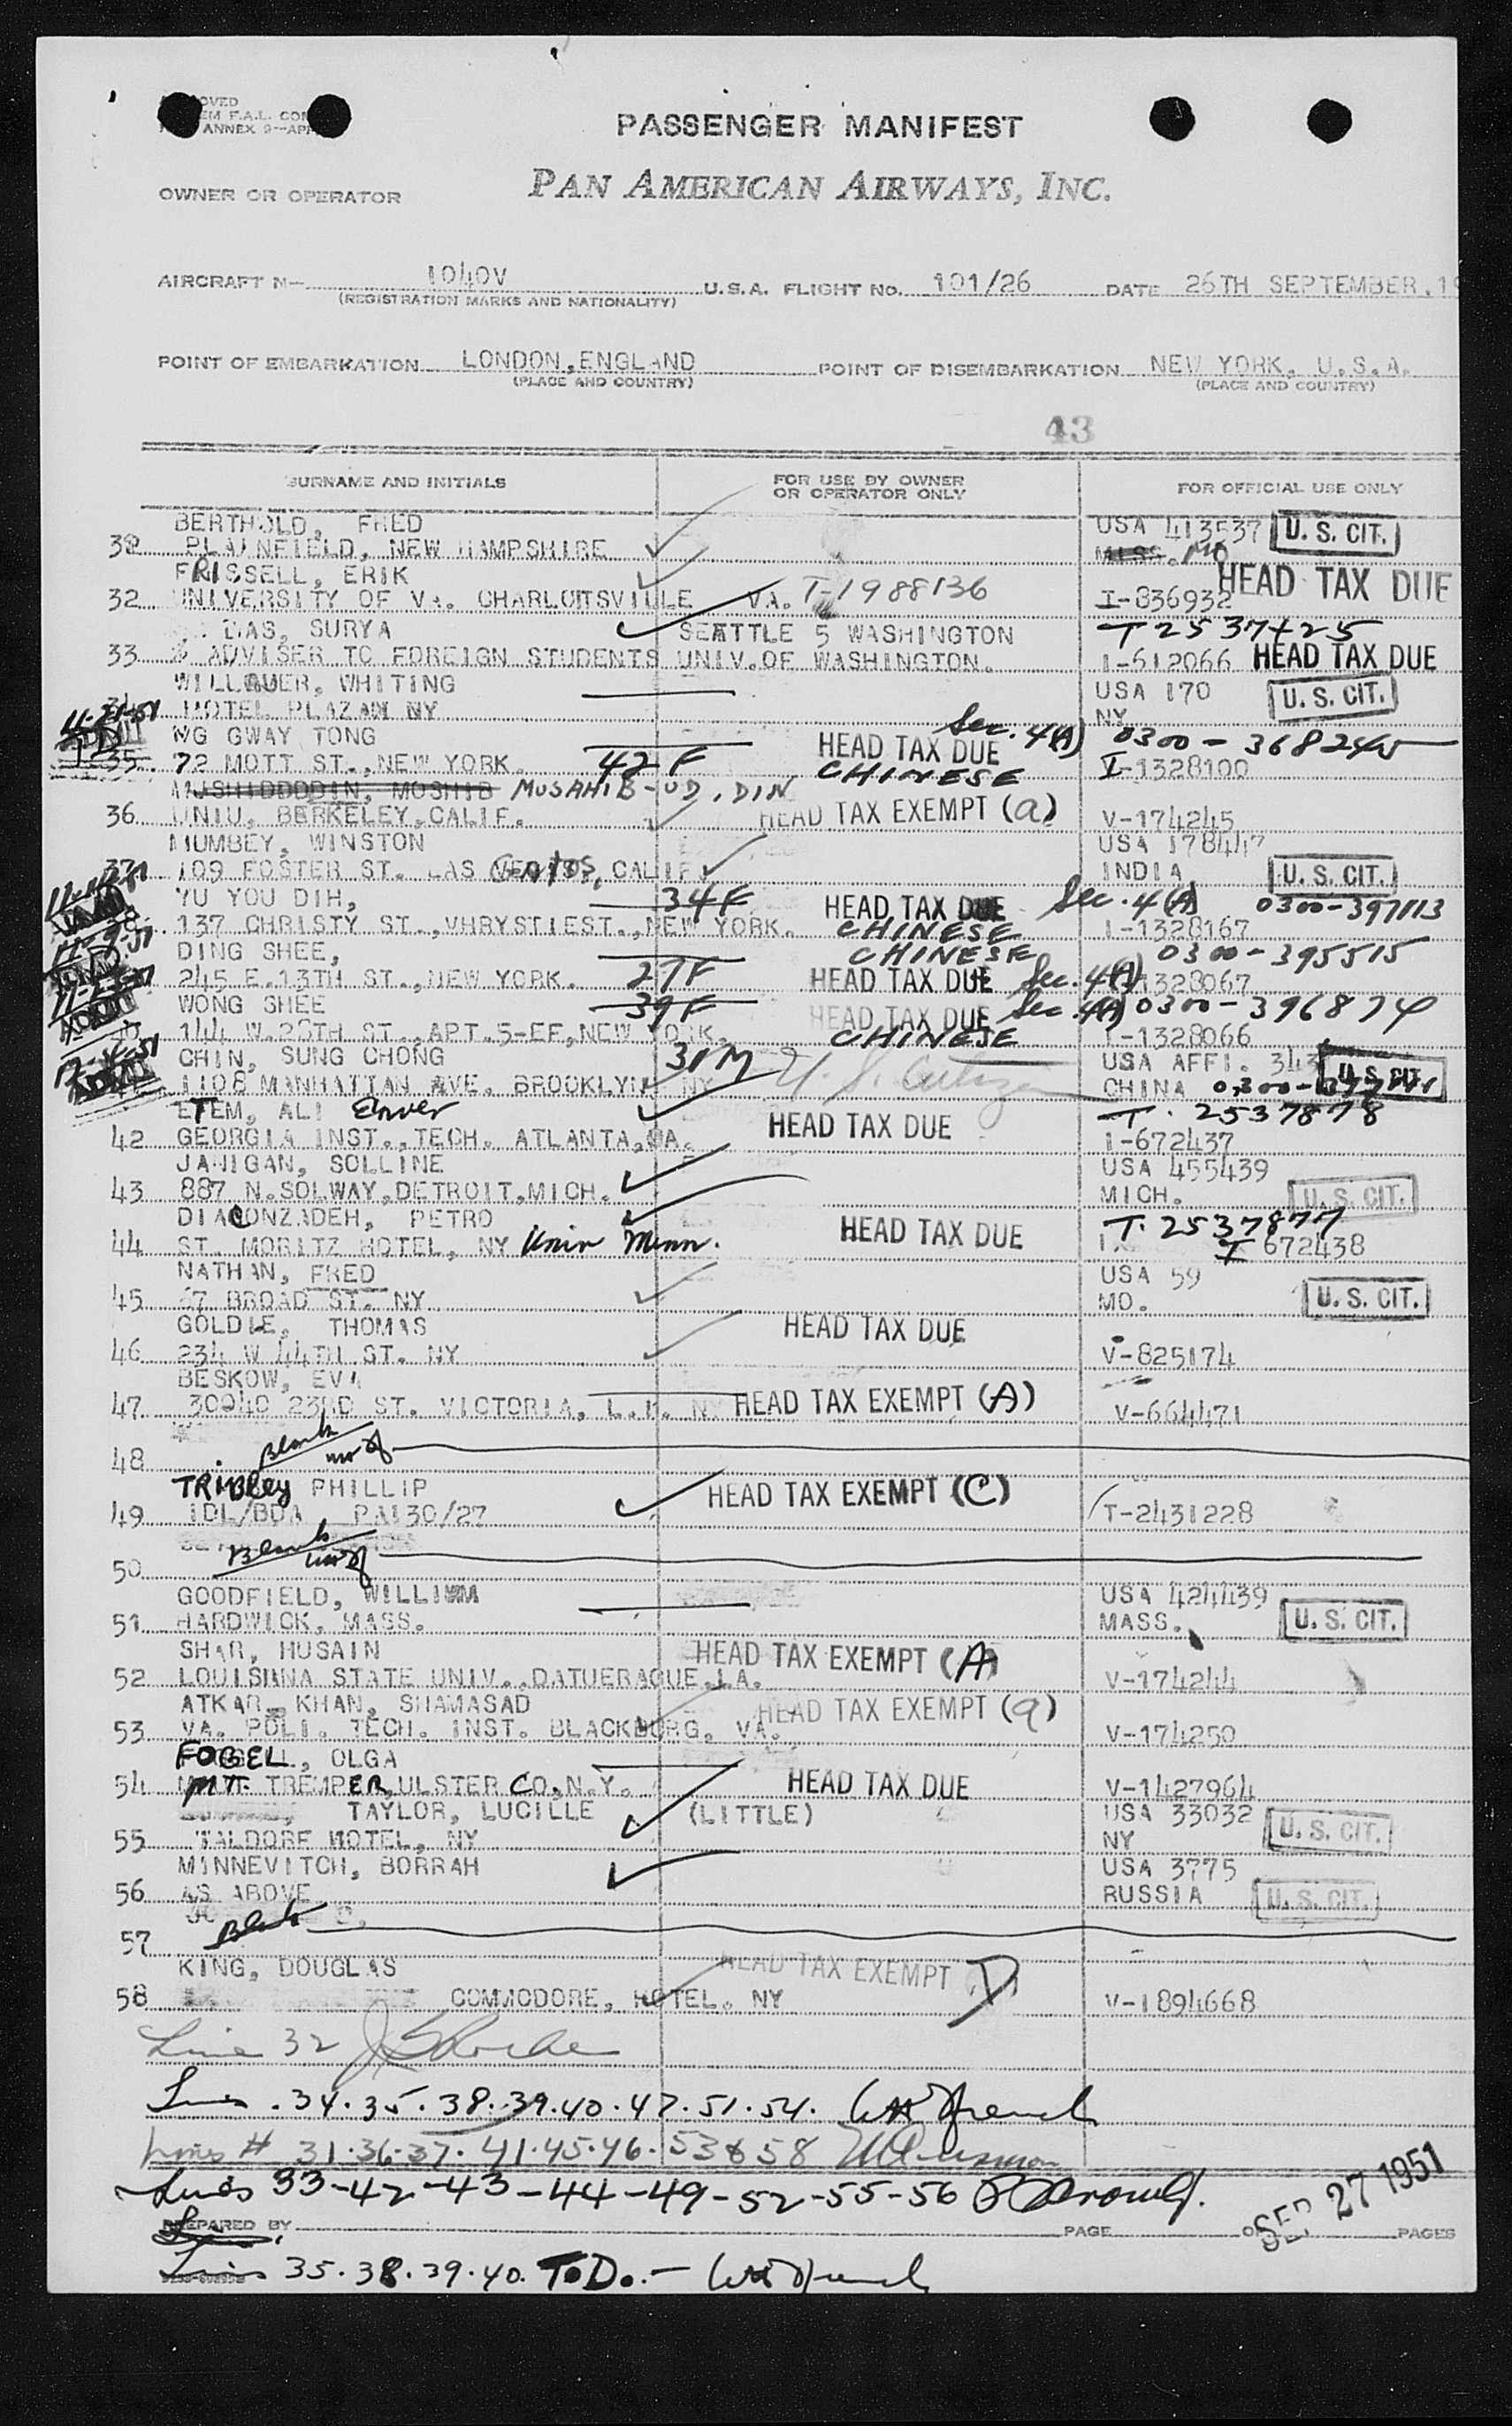 PASSENGER MANIFEST
OWNER OR OPERATOR PAN AMERICAN AIRWAYS, INC.
AIRCRAFT N- 1040V U.S.A. FLIGHT NO. 101/26 DATE 26TH SEPTEMBER, 19
(REGISTRATION MARKS AND NATIONALITY)
POINT OF EMBARKATION LONDON, ENGLAND POINT OF DISEMBARKATION NEW YORK, U.S.A.
(PLACE AND COUNTRY) (PLACE AND COUNTRY)
43
SURNAME AND INITIALS FOR USE BY OWNER OR OPERATOR ONLY FOR OFFICIAL USE ONLY
BERTHOLD, FRED USA 413537 U. S. CIT.
PLAINFIELD, NEW HAMPSHIRE MO
FRISSELL, ERIK HEAD TAX DUE
32 UNIVERSITY OF VA. CHARLOITSVILLE VA. T-1988136 I-836932
DAS, SURYA SEATTLE 5 WASHINGTON T 2537425
33 % ADVISER TO FOREIGN STUDENTS UNIV. OF WASHINGTON. I-612066 HEAD TAX DUE
WILLAUER, WHITING USA 170 U. S. CIT.
HOTEL PLAZAM NY NY
NG GWAY TONG Sec. 4(A) 0300-368245
35 72 MOTT ST., NEW YORK. 42 F HEAD TAX DUE CHINESE I-1328100
MUSAHIB-UD, DIN
36 UNIV. BERKELEY, CALIF. HEAD TAX EXEMPT (a) V-174245
MUMBEY, WINSTON USA 178447
37 109 FOSTER ST. LAS Gatos, CALIF. INDIA U. S. CIT.
YU YOU DIH, 34F HEAD TAX DUE Sec. 4(A) 0300-397113
38 137 CHRISTY ST., VHRYSTIEST., NEW YORK. CHINESE I-1328167
DING SHEE, CHINESE 0300-395515
245 E. 13TH ST., NEW YORK. 27F HEAD TAX DUE Sec. 4(A) 1328067
WONG SHEE 39F HEAD TAX DUE Sec. 4(A) 0300-396874
144 W. 28TH ST., APT. 5-EF, NEW YORK. CHINESE I-1328066
CHIN, SUNG CHONG 31M U. S. Citizen USA AFFI. 343
1108 MANHATTAN AVE. BROOKLYN NY CHINA U. S. CIT.
ETEM, ALI Enver T. 2537878
42 GEORGIA INST., TECH. ATLANTA, GA. HEAD TAX DUE I-672437
JANIGAN, SOLLINE USA 455439
43 887 N. SOLWAY, DETROIT, MICH. MICH. U. S. CIT.
DIACONZADEH, PETRO T. 2537877
44 ST. MORITZ HOTEL, NY Univ Minn. HEAD TAX DUE I 672438
NATHAN, FRED USA 59
45 67 BROAD ST. NY MO. U. S. CIT.
GOLDIE, THOMAS HEAD TAX DUE
46 234 W 44TH ST. NY V-825174
BESKOW, EVA
47 30940 23RD ST. VICTORIA, L.I. N HEAD TAX EXEMPT (A) V-664471
48 Blank
TRIBLEY PHILLIP HEAD TAX EXEMPT (C)
49 IDL/BDA PA130/27 T-2431228
50 Blank
GOODFIELD, WILLIAM USA 424439
51 HARDWICK, MASS. MASS. U. S. CIT.
SHAR, HUSAIN HEAD TAX EXEMPT (A)
52 LOUISIANA STATE UNIV., DATUERAQUE, LA. V-174244
ATKAR, KHAN, SHAMASAD HEAD TAX EXEMPT (a)
53 VA. POLI. TECH. INST. BLACKBURG, VA. V-174250
FOGEL, OLGA
54 MT. TREMPER, ULSTER CO, N.Y. HEAD TAX DUE V-1427964
TAYLOR, LUCILLE (LITTLE) USA 33032
55 WALDORF HOTEL, NY NY U. S. CIT.
MINNEVITCH, BORRAH USA 3775
56 AS ABOVE RUSSIA U. S. CIT.
57 Blank
KING, DOUGLAS HEAD TAX EXEMPT D
58 COMMODORE, HOTEL. NY V-1894668
Line 32
Lines 34.35.38.39.40.47.51.54.
Lines # 31.36.37.41.45.46.53 & 58
Lines 33-42-43-44-49-52-55-56
SEP 27 1951
PREPARED BY PAGE OF PAGES
Lines 35.38.39.40. T.D.-